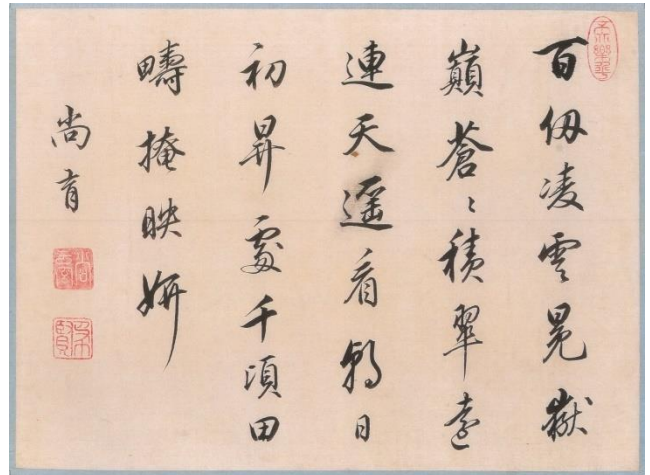 百仞凌雲冕嶽
巔蒼〻積翠遠
連天遥看朝日
初昇處千頃田
疇掩映妍
尚育